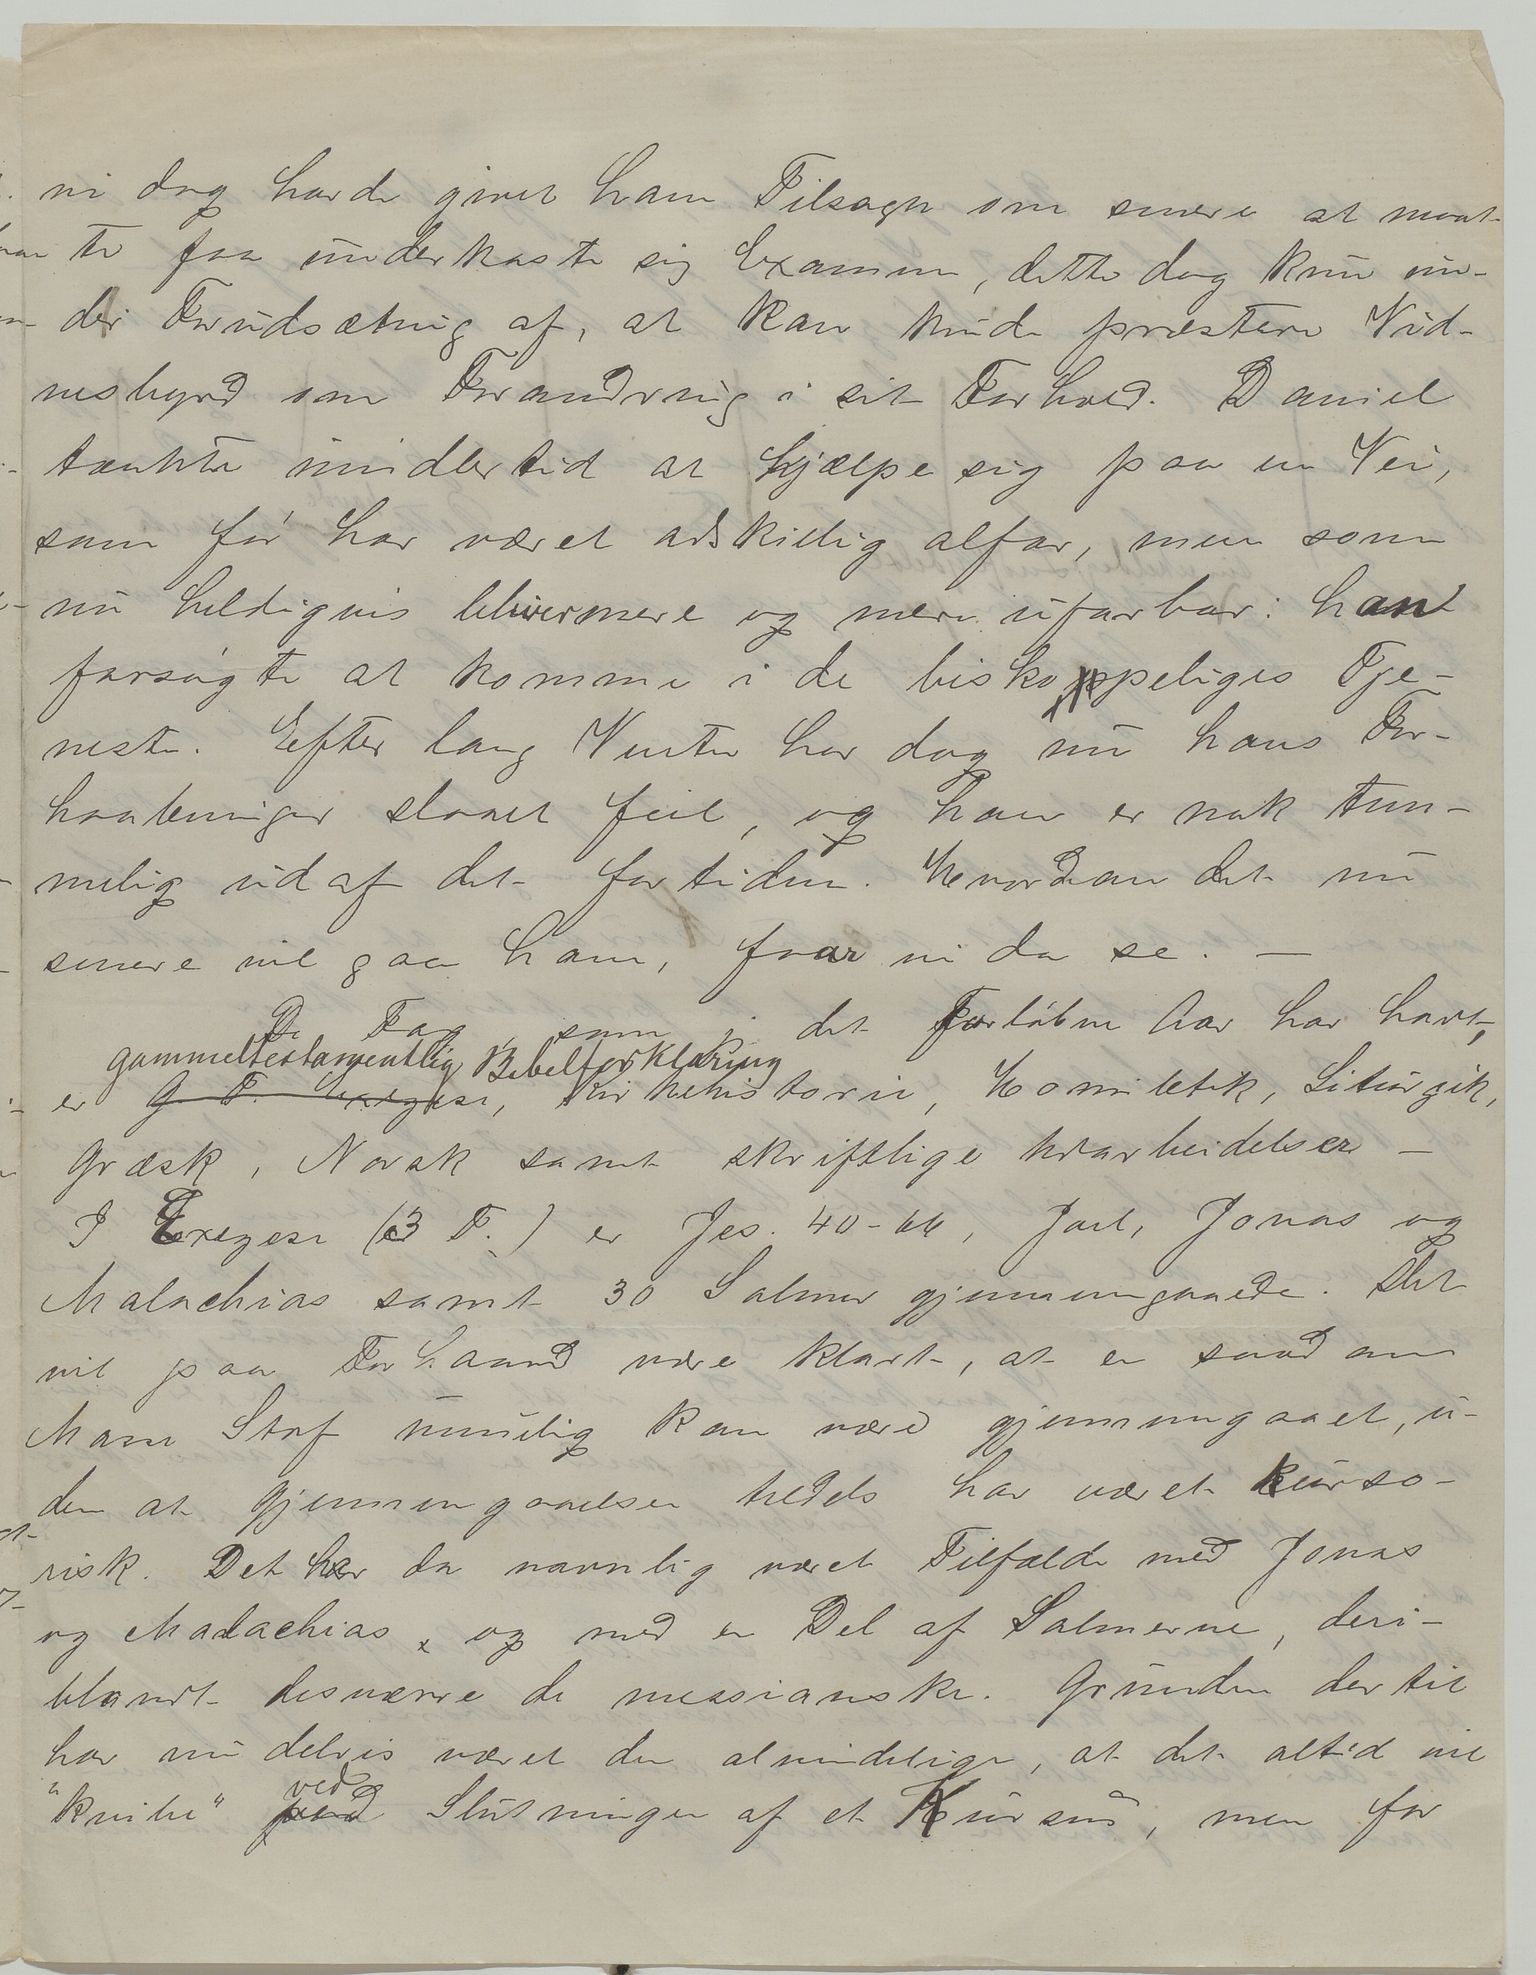 vi dog havde givet ham Tilsagn om senere at maat-
te faa underkaste sig Examen, dette dog kun un-
der Forudsætning af, at han kunde præstere Vid-
nesbyrd om Forandring i sit Forhold. Daniel
tænkte imidlertid at hjælpe sig paa en Vei,
som før har været adskillig alfar, men som
nu heldigvis bliver mere og mere ufarbar: han
forsøgte at komme i de biskoppeliges Tje-
neste. Efter lang Venten har dog nu hans For-
haabninger slaaet feil, og han er nok tem-
melig ud af det for tiden. Hvordan det nu
senere vil gaa ham, faar vi da se. —
De Fag, som i det forløbne Aar har havt,
gammeltestamentlig Bibelforklaring
er G. T. Exegese, Kirkehistorie, Homiletik, Liturgik,
Græsk, Norsk samt skriftlige Udarbeidelser —
I Exegese (3 T.) er Jes. 40-66, Joel, Jonas og
Malachias samt 30 Salmer gjennemgaaede. Det
vil paa Forhaand være klart, at en saadan
Masse Stof umulig kan være gjennemgaaet, u-
den at Gjennemgaaelsen tildels har været kurso-
risk. Det har da navnlig været Tilfælde med Jonas
og Malachias, og med en Del af Salmerne, deri-
blandt desværre de messianske. Grunden dertil
har nu delvis været den almindelige, at det altid vil
"knibe" ved Slutningen af et Kursus, men for